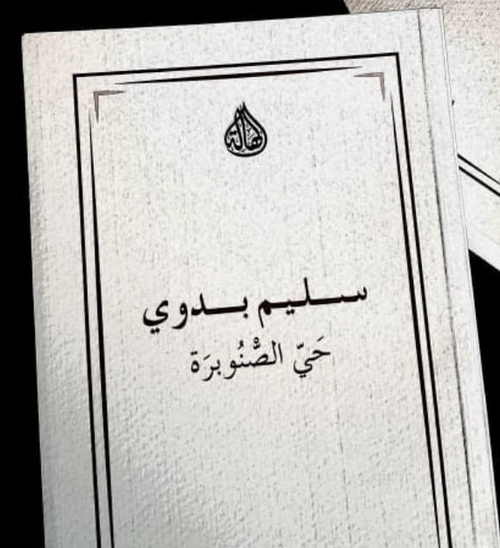 الهالة
سليم بدوي
حَيّ الصُّنُوبرَة